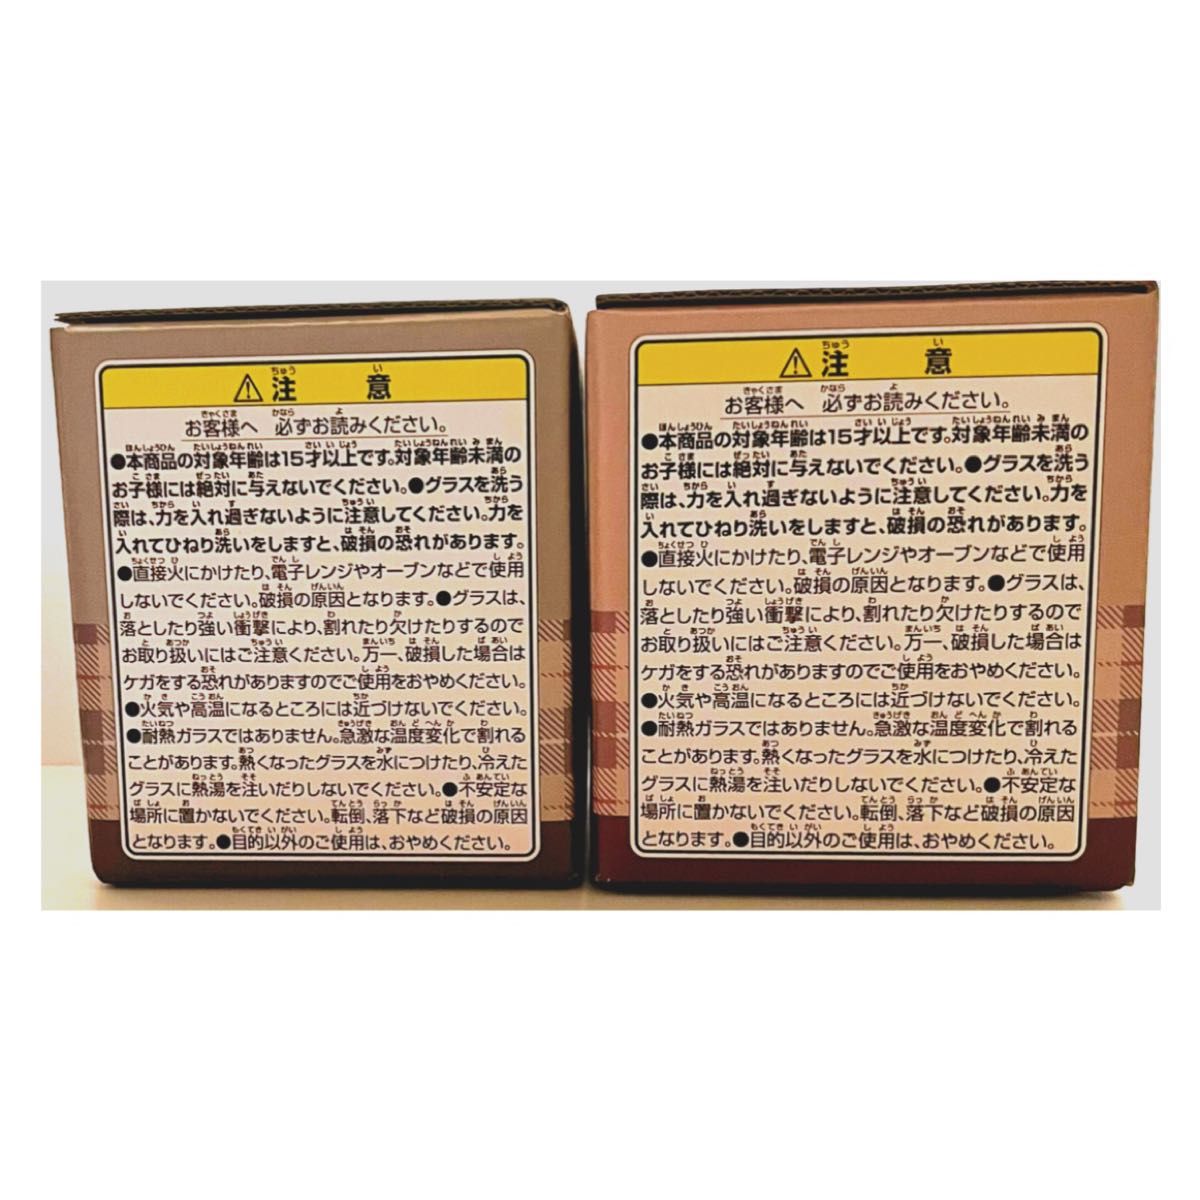 ⚠注意
お客様へ 必ずお読みください。
●本商品の対象年齢は15才以上です。対象年齢未満の
お子様には絶対に与えないでください。●グラスを洗う
際は、力を入れ過ぎないように注意してください。力を
入れてひねり洗いをしますと、破損の恐れがあります。
●直接火にかけたり、電子レンジやオーブンなどで使用
しないでください。破損の原因となります。●グラスは、
落としたり強い衝撃により、割れたり欠けたりするので
お取り扱いにはご注意ください。万一、破損した場合は
ケガをする恐れがありますのでご使用をおやめください。
●火気や高温になるところには近づけないでください。
●耐熱ガラスではありません。急激な温度変化で割れる
ことがあります。熱くなったグラスを水につけたり、冷えた
グラスに熱湯を注いだりしないでください。●不安定な
場所に置かないでください。転倒、落下など破損の原因
となります。●目的以外のご使用は、おやめください。
⚠注意
お客様へ 必ずお読みください。
●本商品の対象年齢は15才以上です。対象年齢未満の
お子様には絶対に与えないでください。●グラスを洗う
際は、力を入れ過ぎないように注意してください。力を
入れてひねり洗いをしますと、破損の恐れがあります。
●直接火にかけたり、電子レンジやオーブンなどで使用
しないでください。破損の原因となります。●グラスは、
落としたり強い衝撃により、割れたり欠けたりするので
お取り扱いにはご注意ください。万一、破損した場合は
ケガをする恐れがありますのでご使用をおやめください。
●火気や高温になるところには近づけないでください。
●耐熱ガラスではありません。急激な温度変化で割れる
ことがあります。熱くなったグラスを水につけたり、冷えた
グラスに熱湯を注いだりしないでください。●不安定な
場所に置かないでください。転倒、落下など破損の原因
となります。●目的以外のご使用は、おやめください。